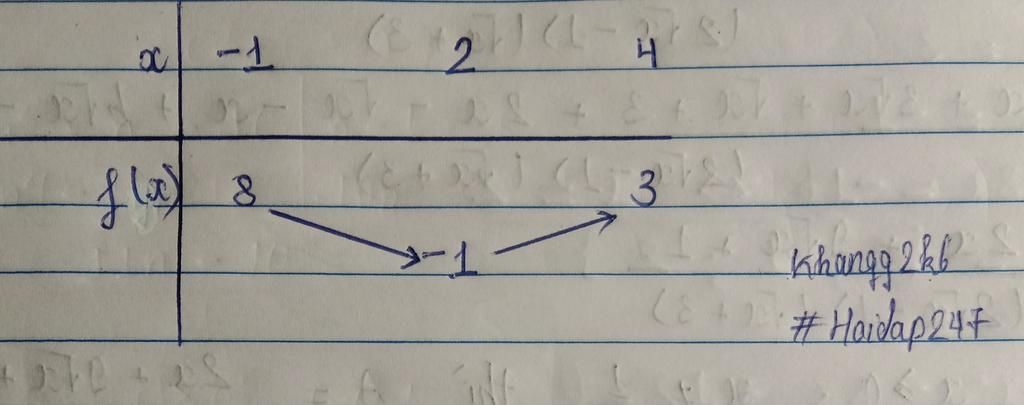 x -1 2 4
f(x) 8 3
-1
Khangg2k6
#Hoidap247